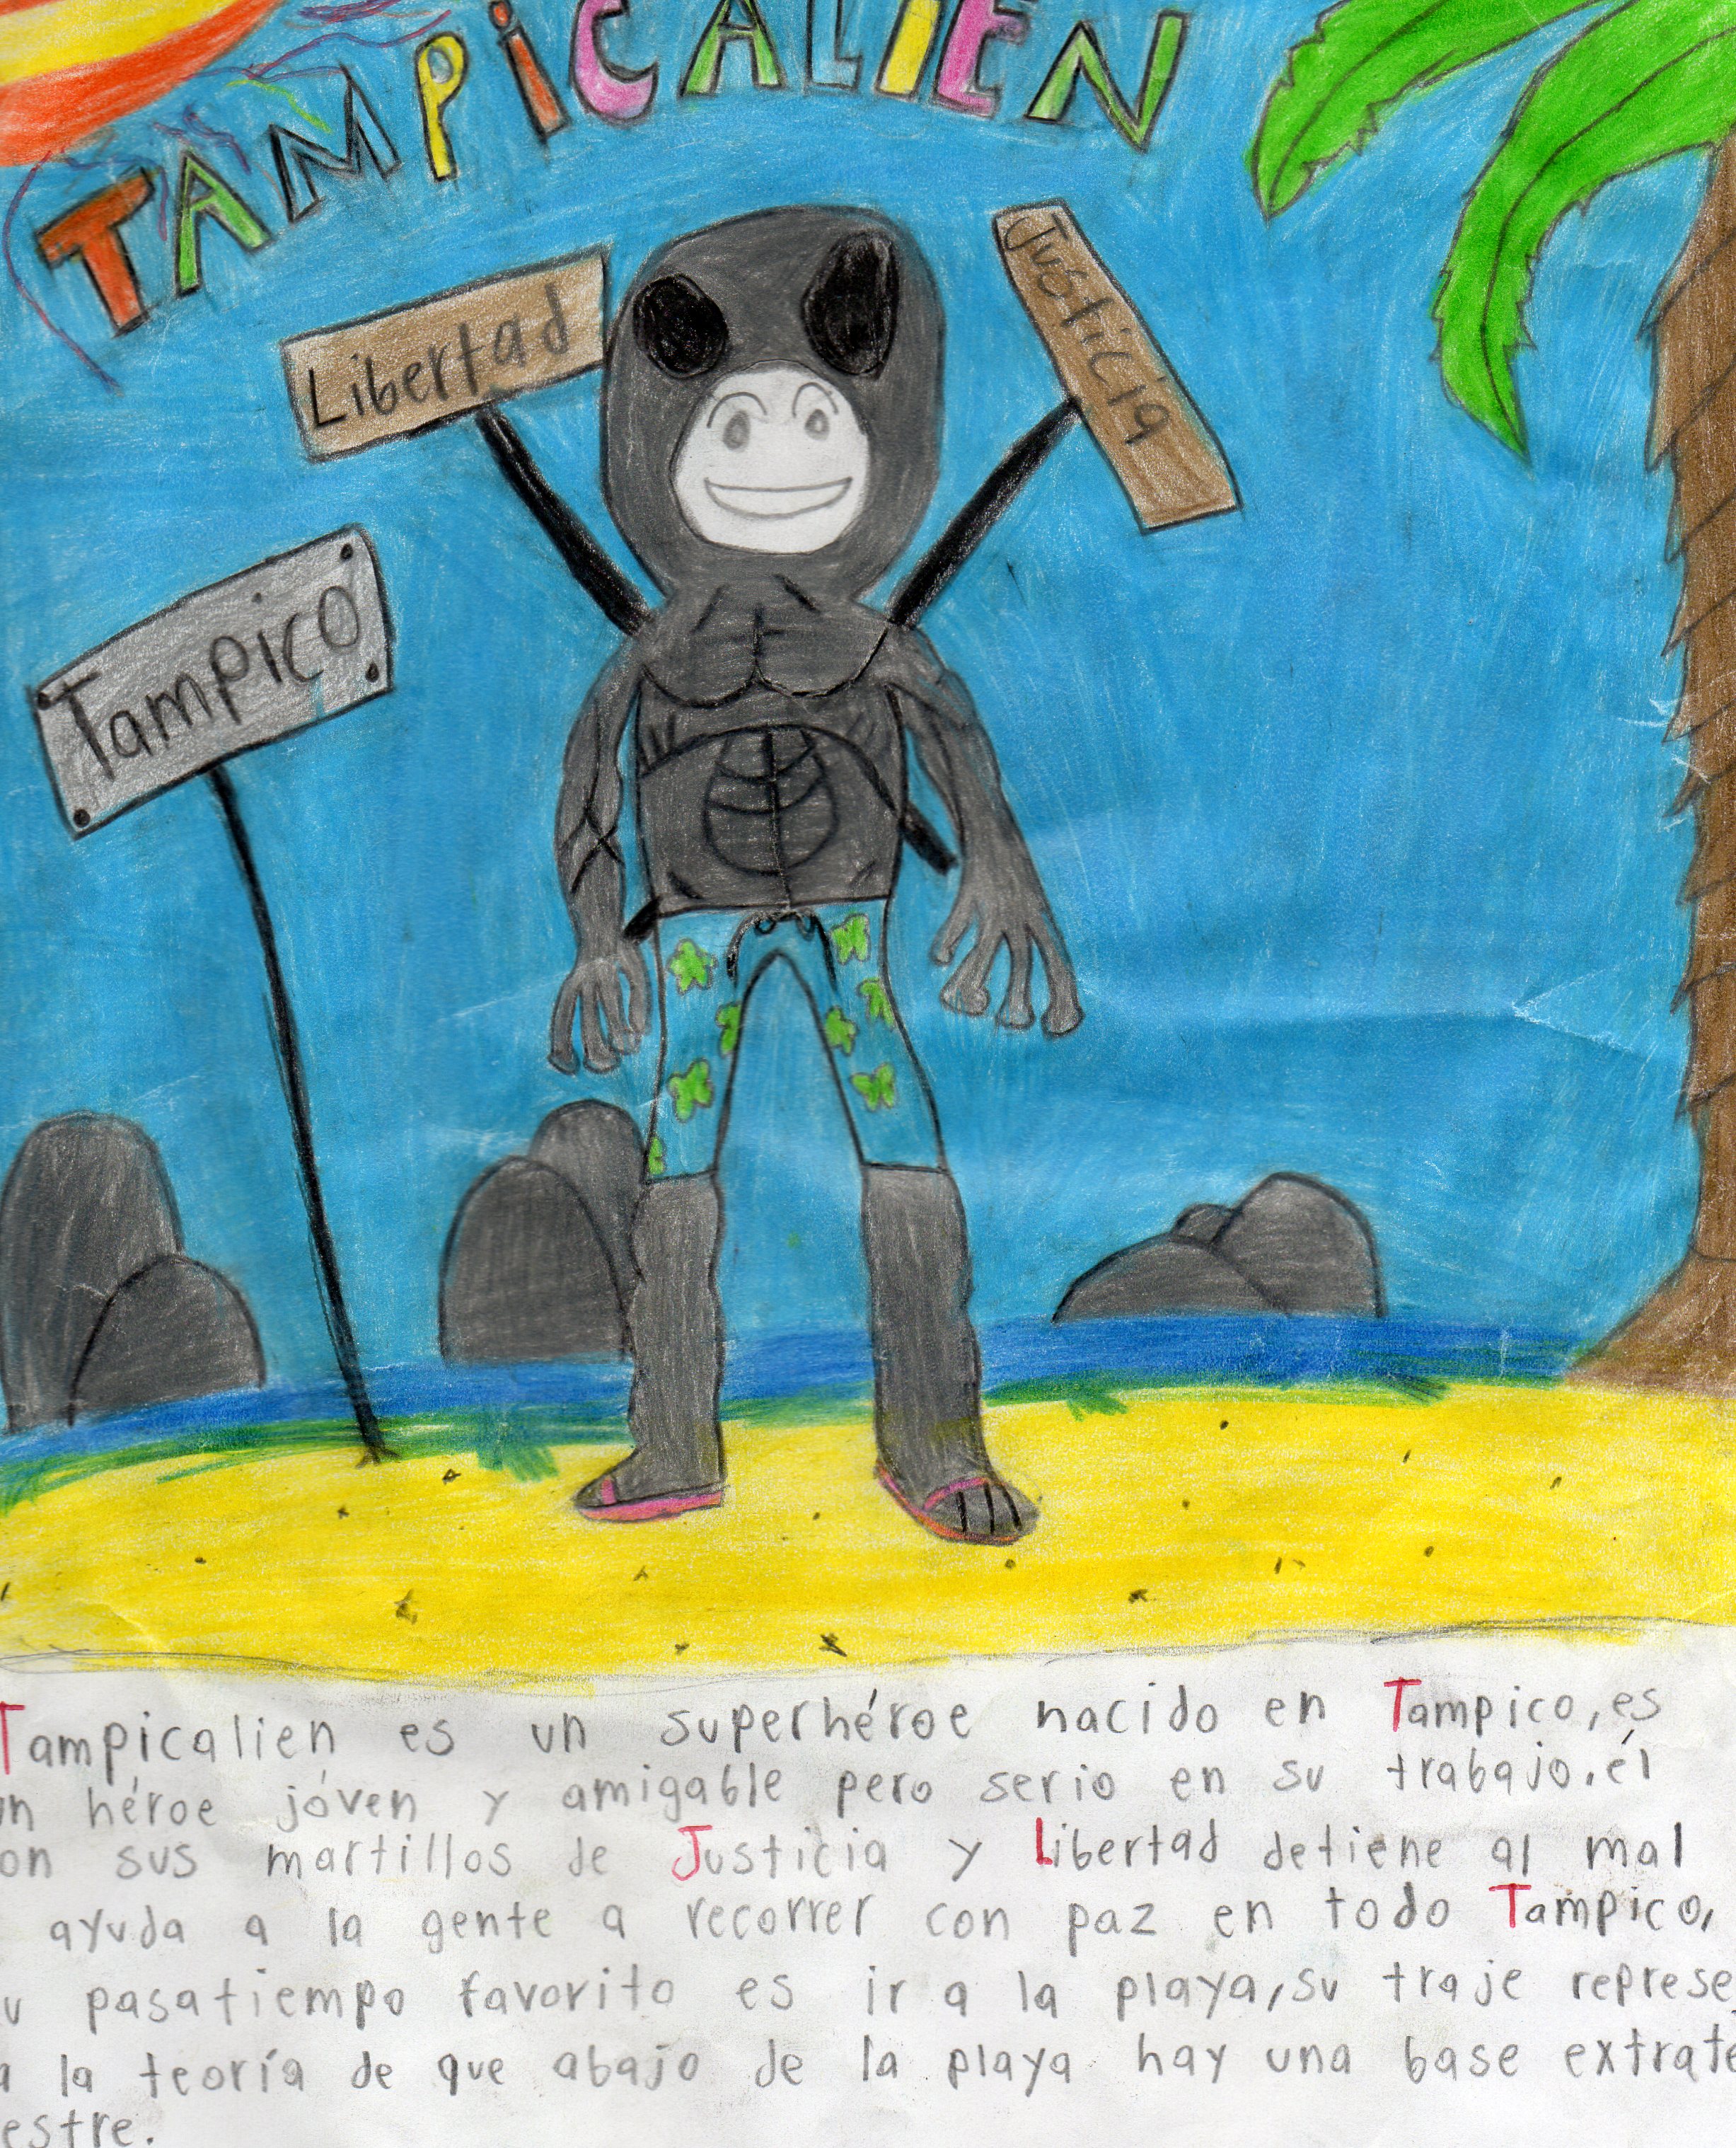 TAMPICALIEN
Libertad
Justicia
Tampico
Tampicalien es un superhéroe nacido en Tampico, es
un héroe jóven y amigable pero serio en su trabajo. él
on sus martillos de Justicia y Libertad detiene al mal
ayuda a la gente a recorrer con paz en todo Tampico,
u pasatiempo favorito es ir a la playa, su traje represe
a la teoría de que abajo de la playa hay una base extrate
estre.